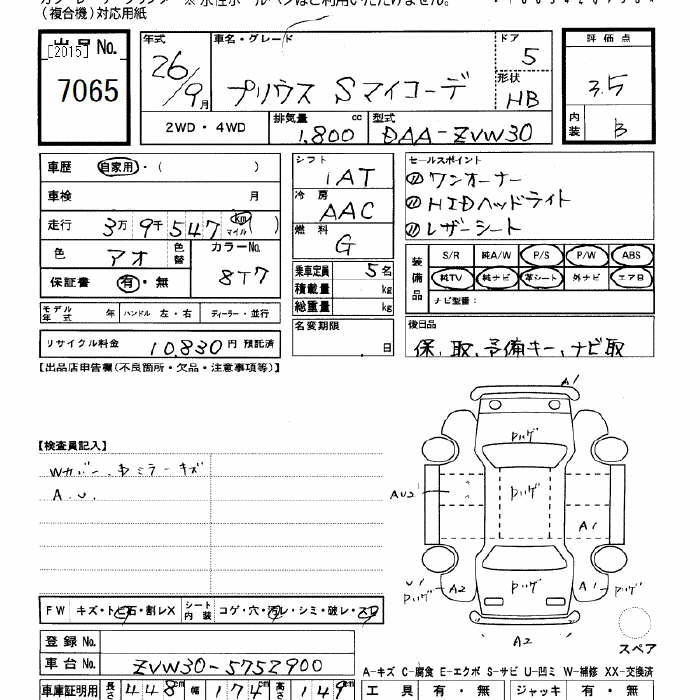 (複合機)対応用紙
出品No.
[2015]
7065
年式 車名・グレード ドア
26/9月 プリウス Sマイコーデ 5
形状
HB
評価点
3.5
内装 B
2WD・4WD 排気量 1,800 cc 型式 DAA-ZVW30
車歴 自家用・( )
車検 月
走行 3万9千547 km マイル ( )
色 アオ 色替 カラーNo. 8T7
保証書 有・無
モデル年式 年 ハンドル 左・右 ディーラー・並行
リサイクル料金 10,830円 預託済
シフト
IAT
冷房
AAC
燃料
G
乗車定員 5名
積載量 kg
総重量 kg
名変期限
日
セールスポイント
〃ワンオーナー
〃HIDヘッドライト
〃レザーシート
装備品
S/R 純A/W P/S P/W ABS
純TV 純ナビ 革シート 外ナビ エアB
ナビ型番:
後日品
保、取、予備キー、ナビ取
【出品店申告欄(不良箇所・欠品・注意事項等)】
【検査員記入】
Wカバー、中ミラーキズ
A.U.
A1
ハゲ
AU2
ハゲ
A1
U1 ハゲ A2
ハゲ
A1 ハゲ
A2
スペア
FW キズ・トビ石・割レX シート内装 コゲ・穴・汚レ・シミ・破レ・スレ
登録No.
車台No. ZVW30-5752900
車庫証明用 長さ 448cm 幅 174cm 高さ 149cm
A-キズ C-腐食 E-エクボ S-サビ U-凹ミ W-補修 XX-交換済
工具 有・無 ジャッキ 有・無